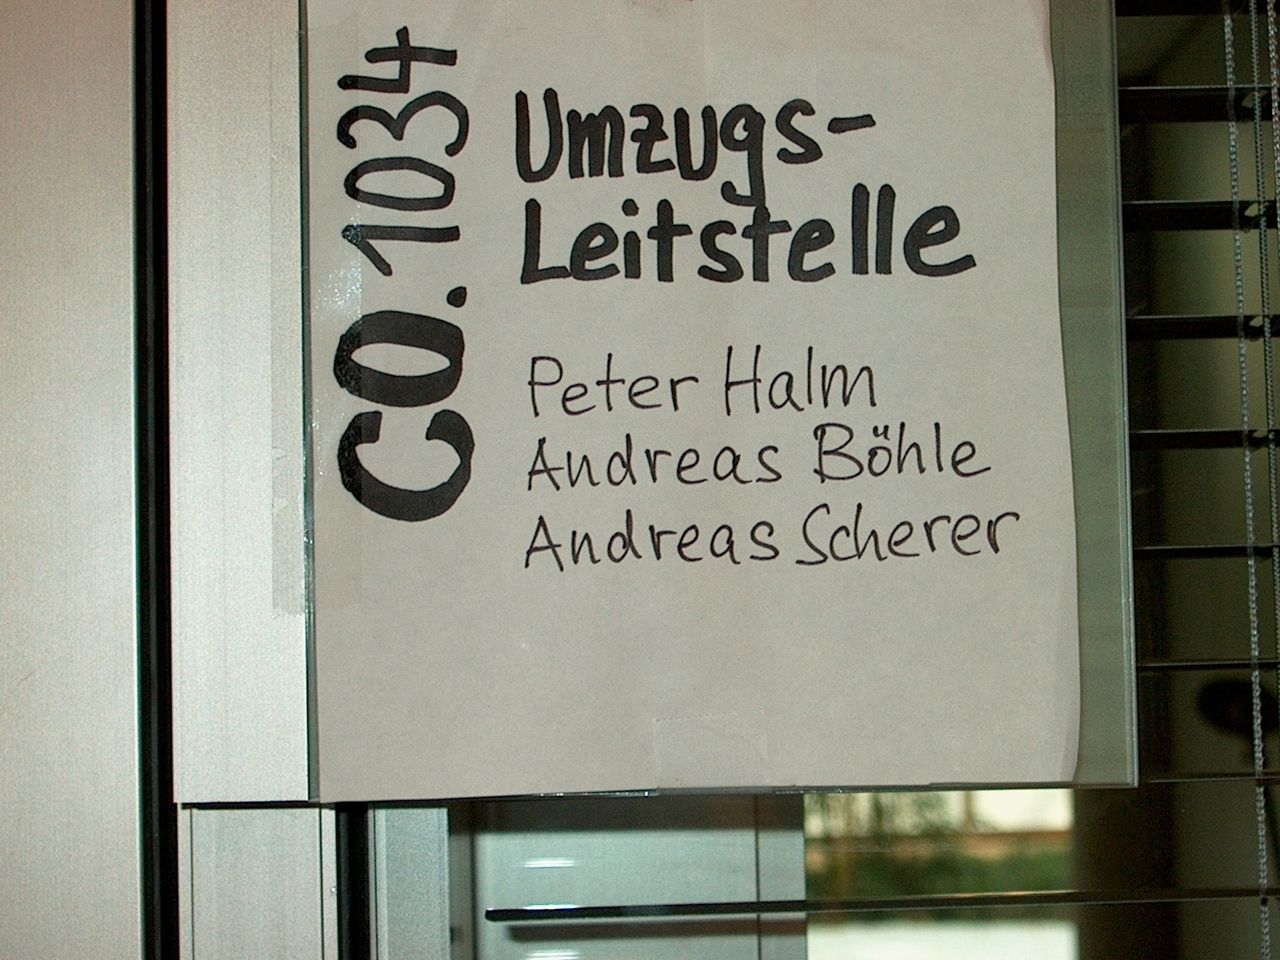 CO.1034
Umzugs-
Leitstelle
Peter Halm
Andreas Böhle
Andreas Scherer